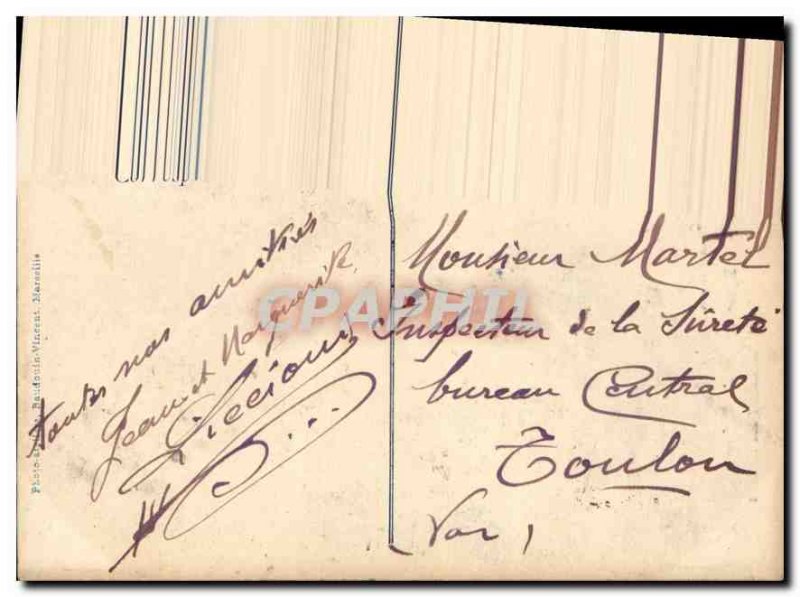 toutes nos amitiés
Jean et Marguerite
Monsieur Martel
Inspecteur de la Sûreté
bureau Central
Toulon
Var
Baudouin-Vincent, Marseille
CPAPHIL